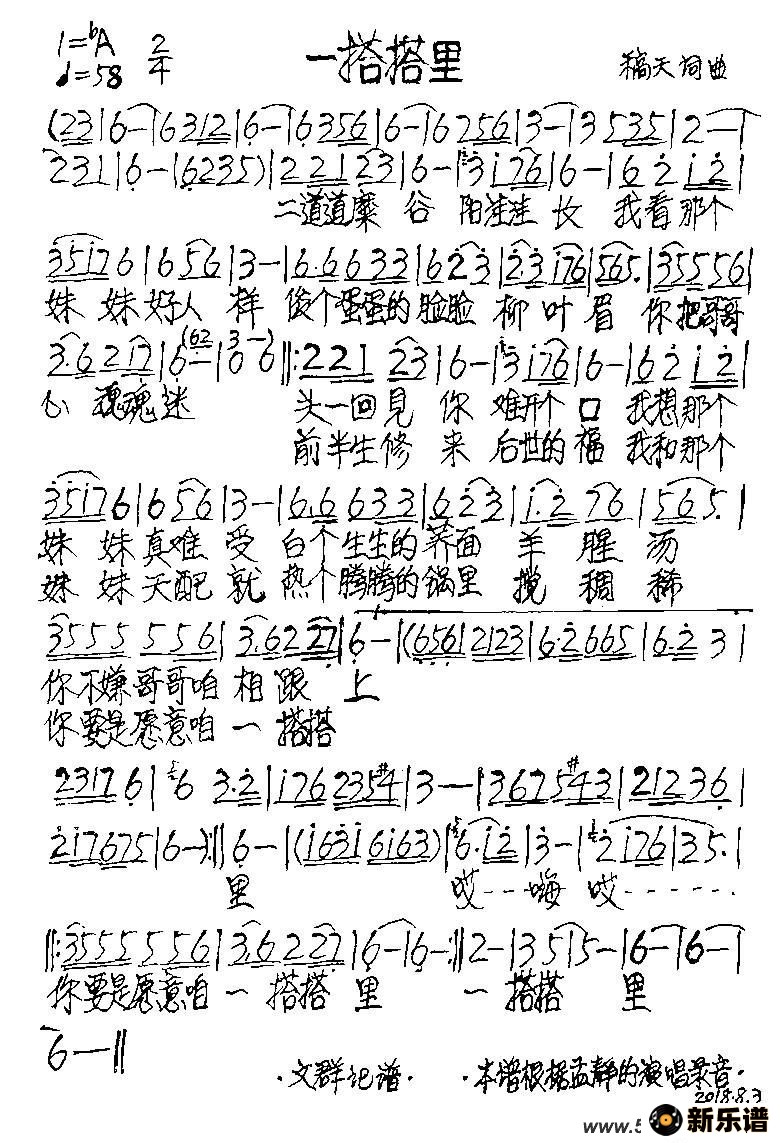 1=♭A 2/4 一搭搭里 稿天词曲
♩=58
(231|6—|6312|6—|6356|6—|6756|3—|3535|2—|
2311|6—|6235)|221 23|6—|3 i76|6—|6 2 i2|
二道道糜 谷 阳洼洼 长 我看那个
35i76|656|3—|6·6633|623|23i76|565·|355556|
妹 妹好人 样 俊个蛋蛋的脸脸 柳叶 眉 你把哥哥
3·6217|6—|06||:221 23|6—|3 i76|6—|62 i2|
心 魂魂迷 头一回见 你 难开个 口 我想那个
前半生修 来 后世的福 我和那个
35i76|656|3—|6·6633|623|i·2 76|565·|
妹 妹真难 受 白个生生的荞面 羊 腥 汤
妹 妹天配 就 热个腾腾的锅里 搅 稠 稀
3555 556|3·62 27|6—|(656|2123|6·2665|6·2 3|
你不嫌哥哥咱 相 跟 上
你要是愿意咱 一 搭搭
23176|6 3·2|i76235#4|3—|3675#43|21236|
2i7675|6—):||6—|(i63i6i63)|6·i2|3—|2i76|35·|
里 哎----嗨 哎------
||:3555556|3·6227|6—|6—:||2—|35|5—|6—|6—|
你要是愿意咱 一 搭搭 里 一 搭搭 里
6—||
·文群记谱· ·本谱根据孟静的演唱录音·
2018.8.3
www.5 新乐谱